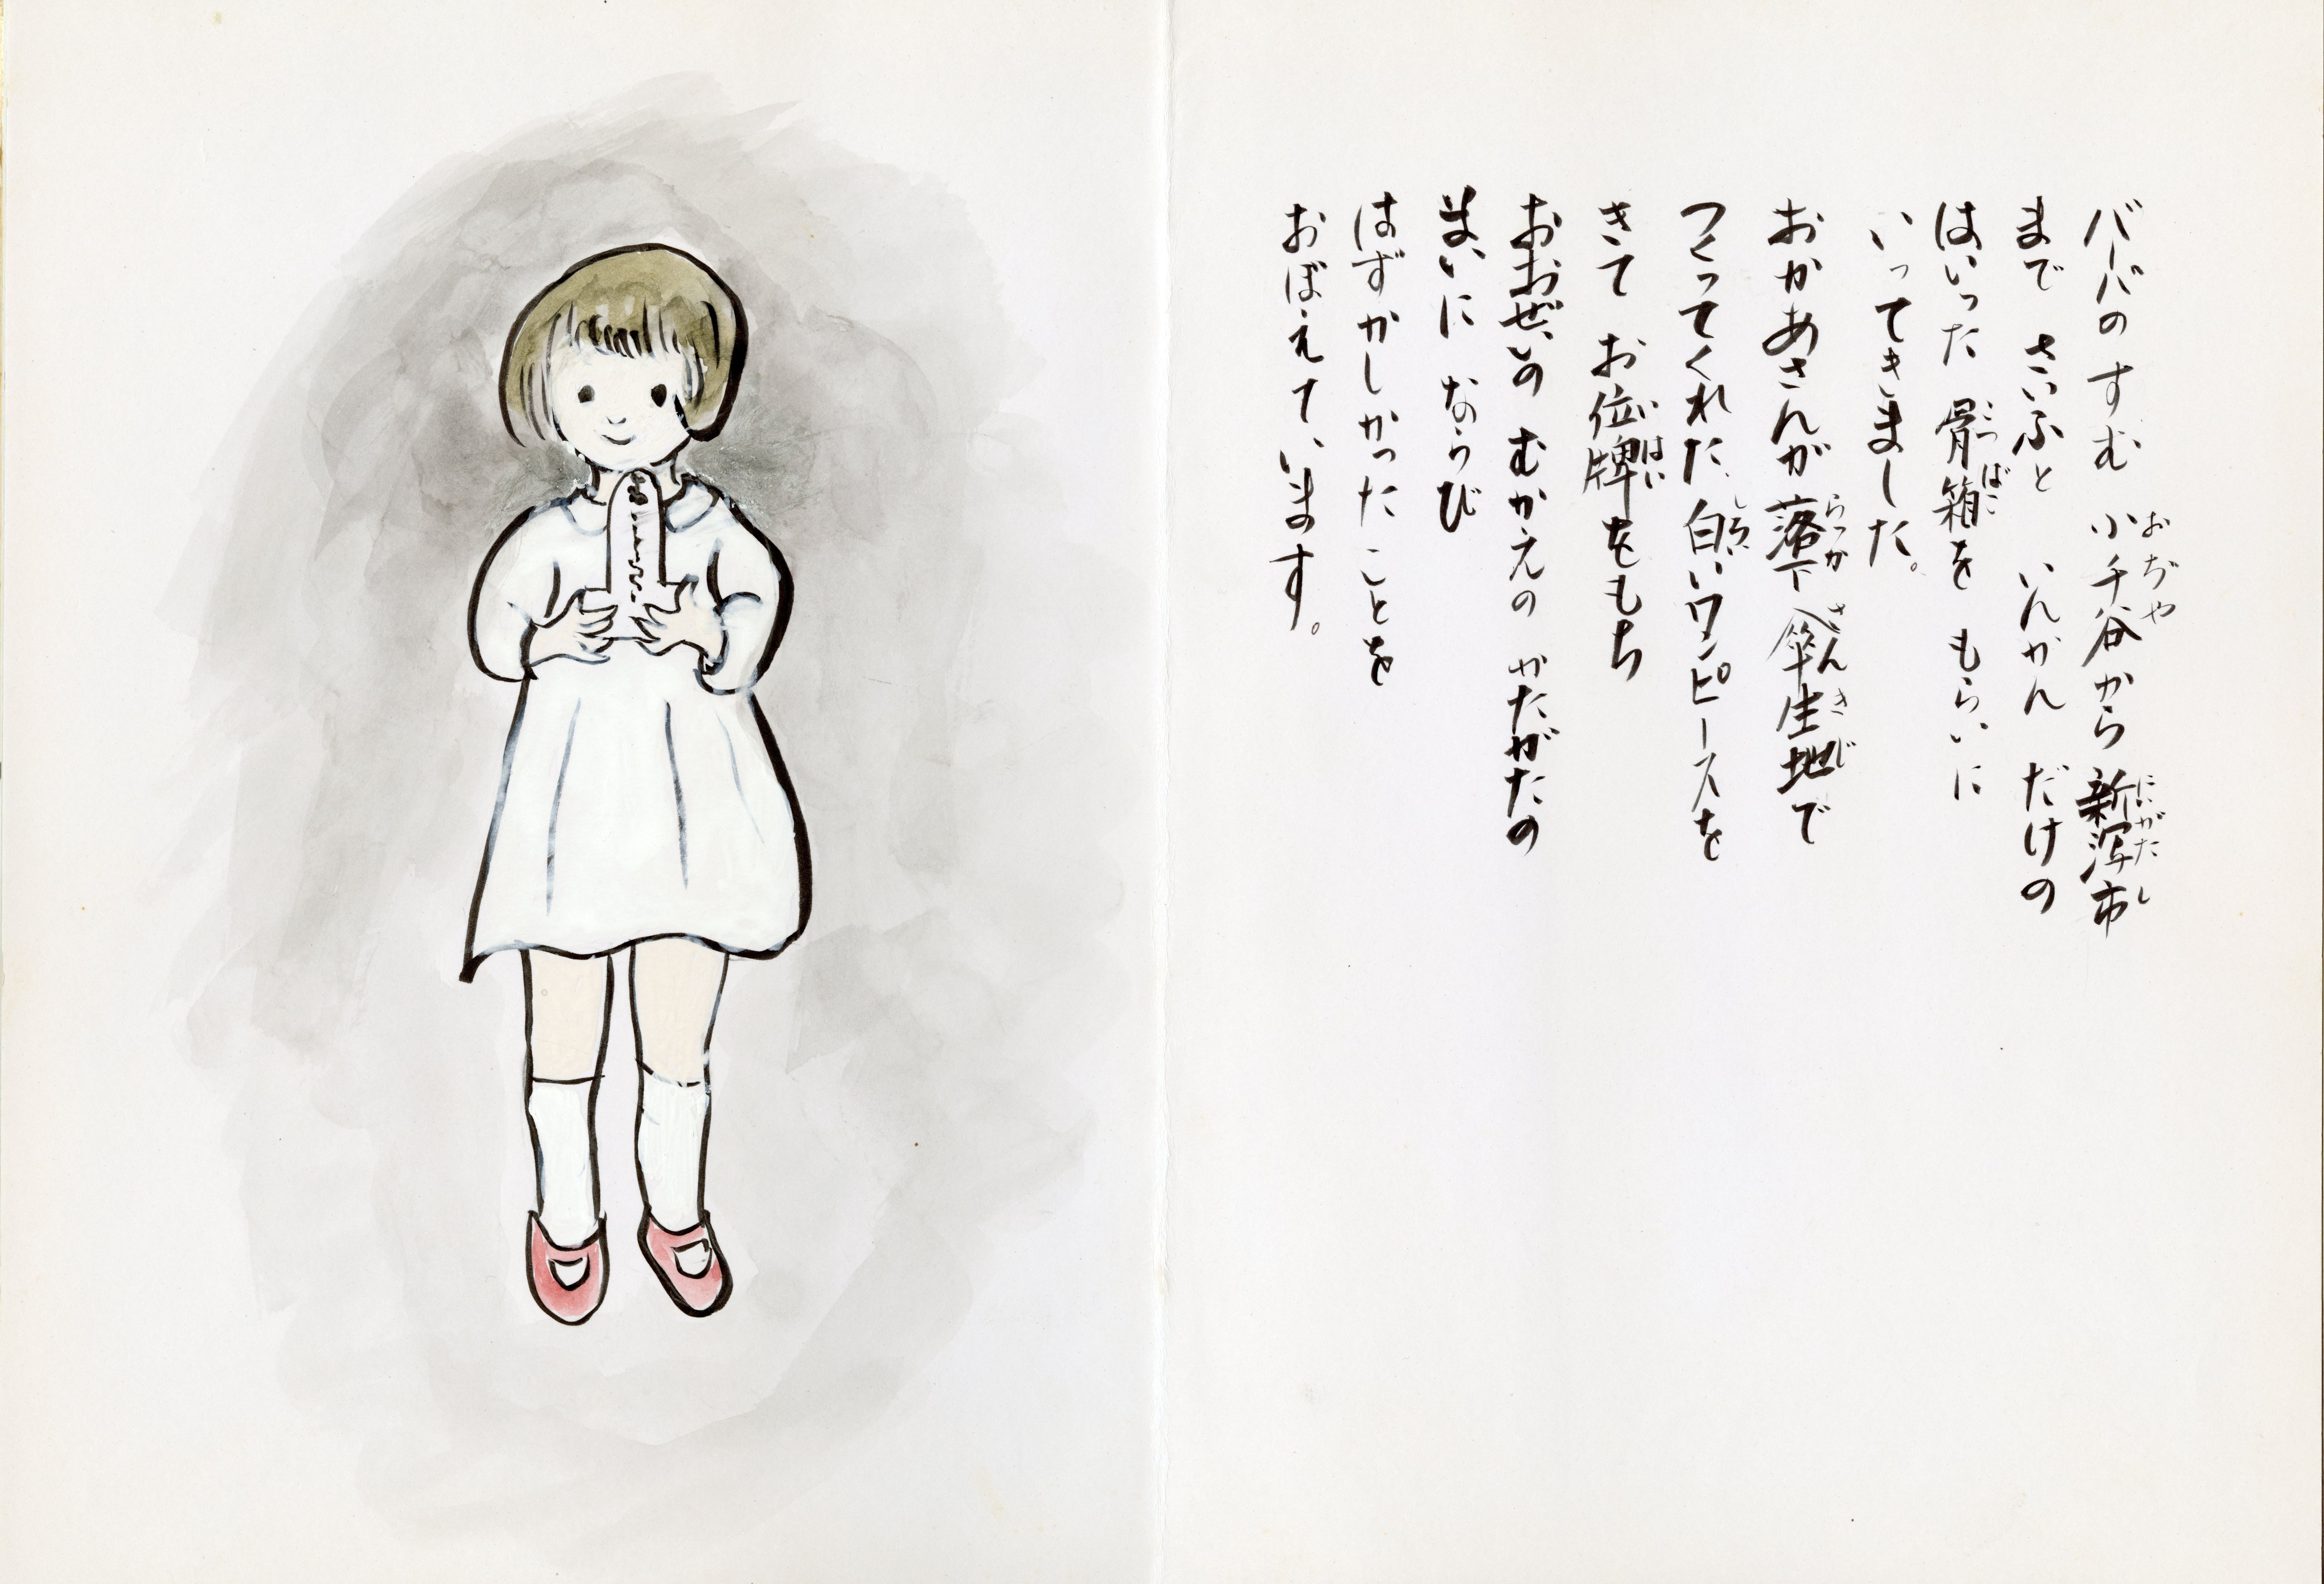 バーバのすむ 小千谷から 新潟市
まで さいふと いんかん だけの
はいった 骨箱を もらいに
いってきました。
おかあさんが 落下傘生地で
つくってくれた 白いワンピースを
きて お位牌をもち
おおぜいの むかえの かたがたの
まいに ならび
はずかしかった ことを
おぼえて、います。
おぢや
にいがたし
こつばこ
らっかさんきじ
しろ
いはい